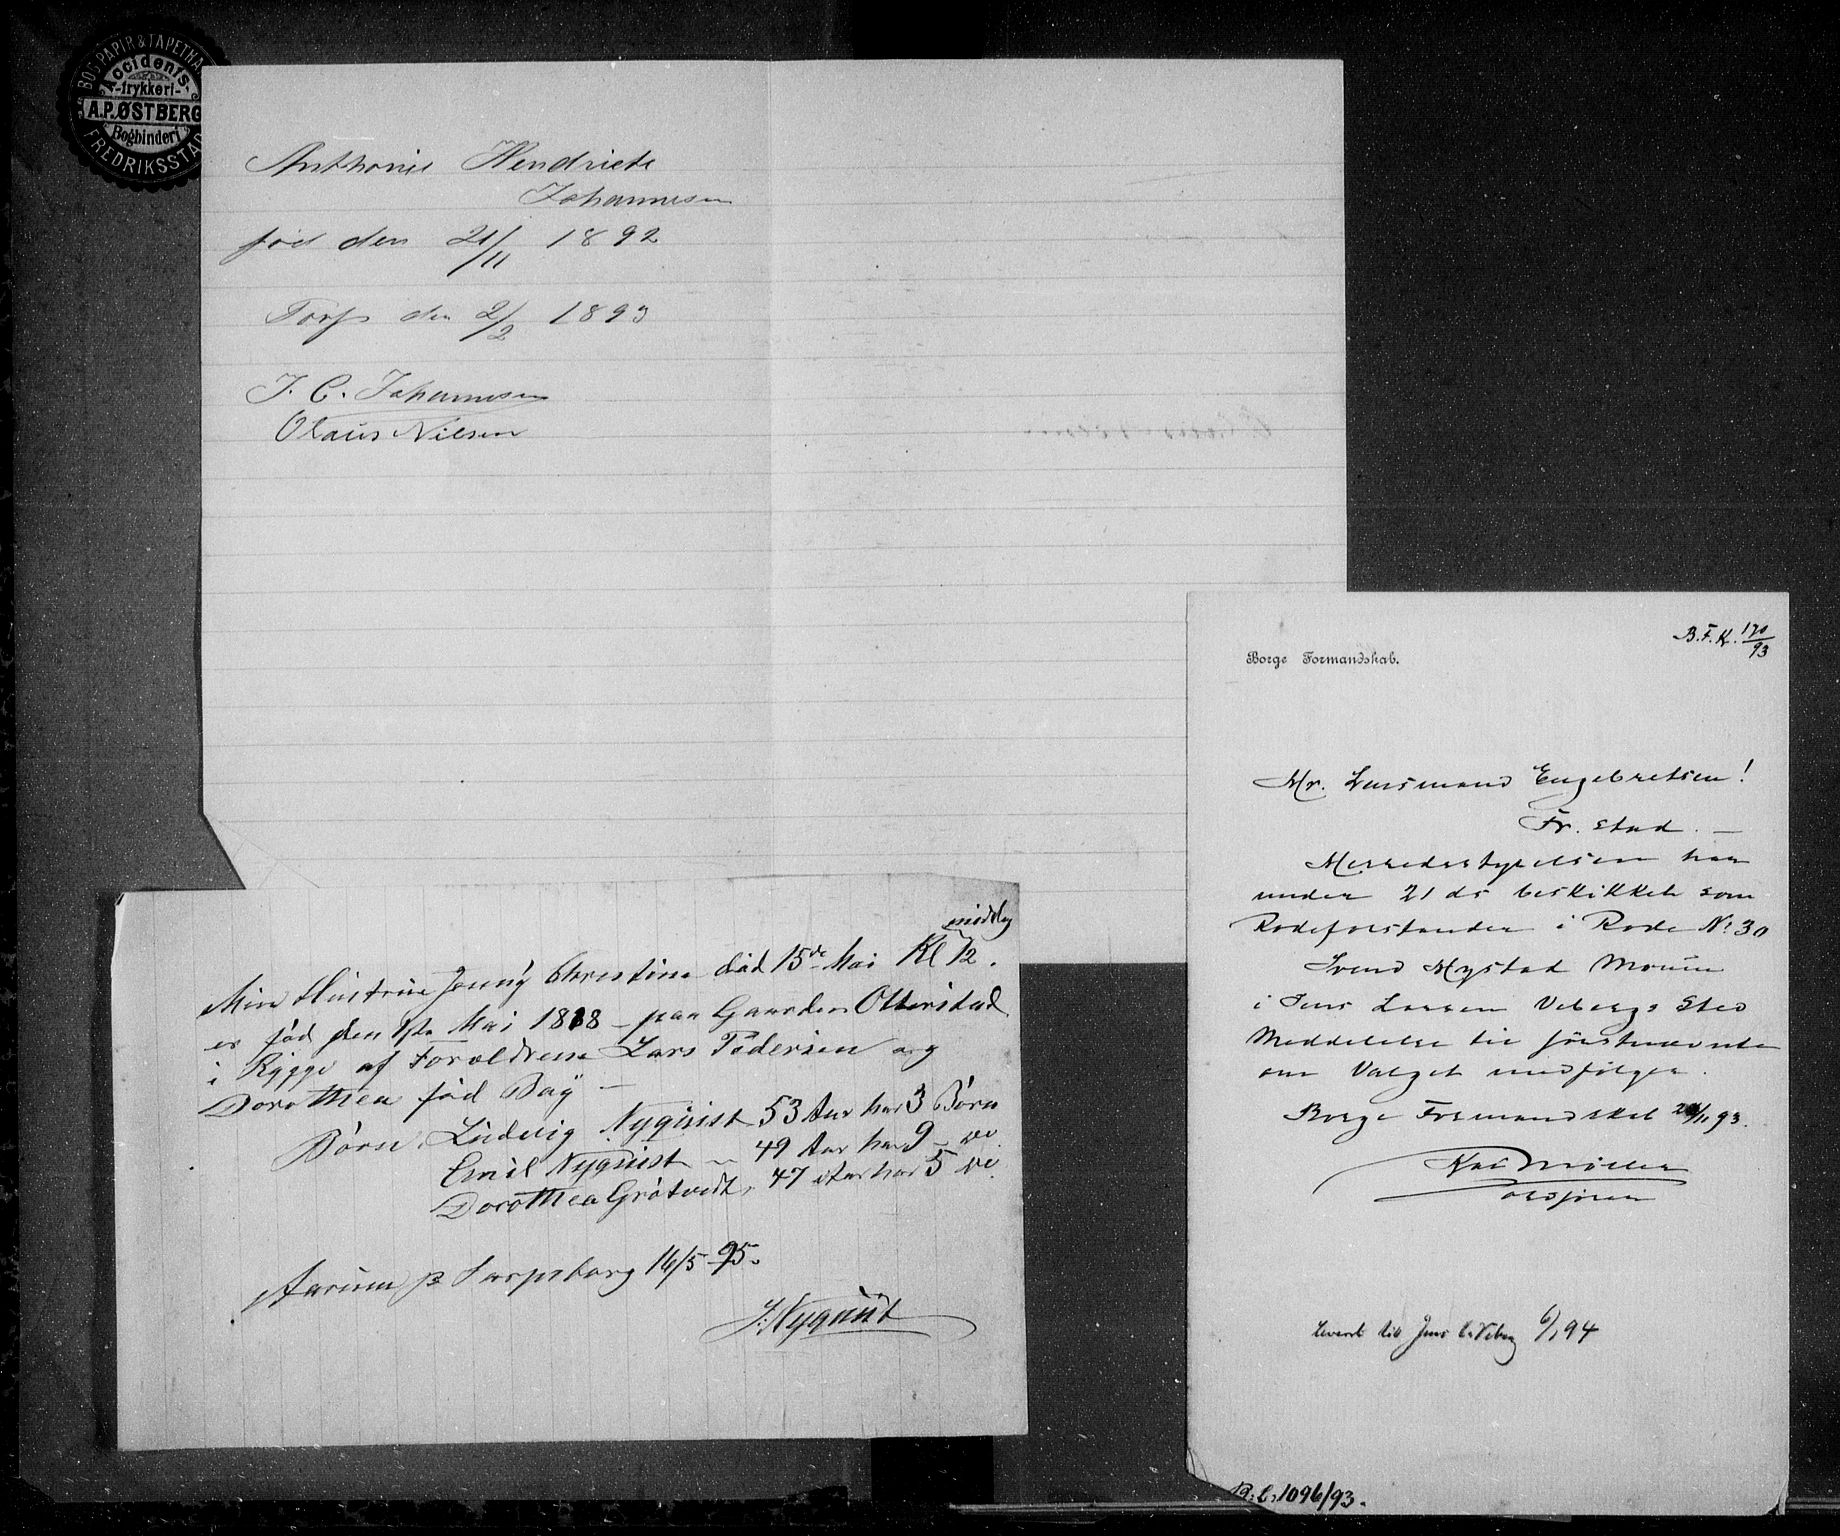 BOG PAPIR & TAPETHA
Accidents-
-trykkeri-
A.P. ØSTBERG
Bogbinderi
FREDRIKSSTAD
Anthonie Hendriete
Johannesen
fød den 21/11 1892
Torp den 2/2 1893
J. C. Johannesen
Olaus Nilsen
middag
Min Hustrue Jenny Christine død 15de Mai Kl 12.
er fød den 1ste Mai 1818 – paa Gaarden Otterstad
i Rygge af Foreldrene Lars Pedersen og
Dorothea fød Bay –
Børn, Ludvig Nyquist 53 Aar har 3 Børn
Emil Nyquist – 49 Aar har 9 – do
Dorothea Grøtvedt, 47 Aar har 5 do.
Aarum pr Sarpsborg 16/5 – 95.
J. Nyquist
B.F.K. 170/93
Borge Formandskab.
Hr. Lensmand Engebretsen!
Fr.stad. –
Herredsstyrelsen har
under 21 ds beskikket som
Rodeforstander i Rode No 30
Svend Nystad Moum
i Jens Larsen Vebergs Sted
Meddelelse til førstnævnte
om Valget medfølger.
Borge Formandskab /11 93.
Møller
ordfører
leveret til Jens L. Viberg 6/1 94
B.L. 1096/93.